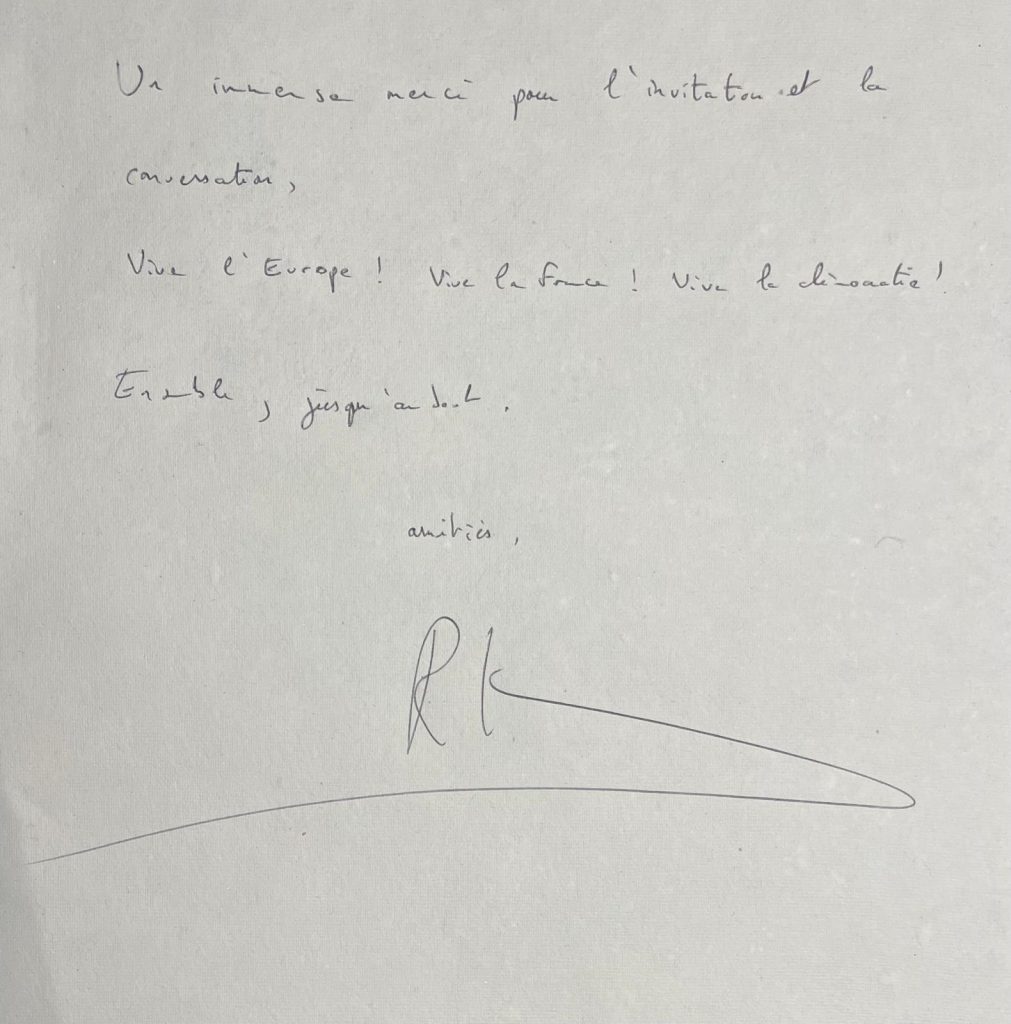 Un immense merci pour l'invitation et la
conversation,
Vive l'Europe ! Vive la France ! Vive la démocratie !
Ensemble, jusqu'au bout.
amitiés,
RK